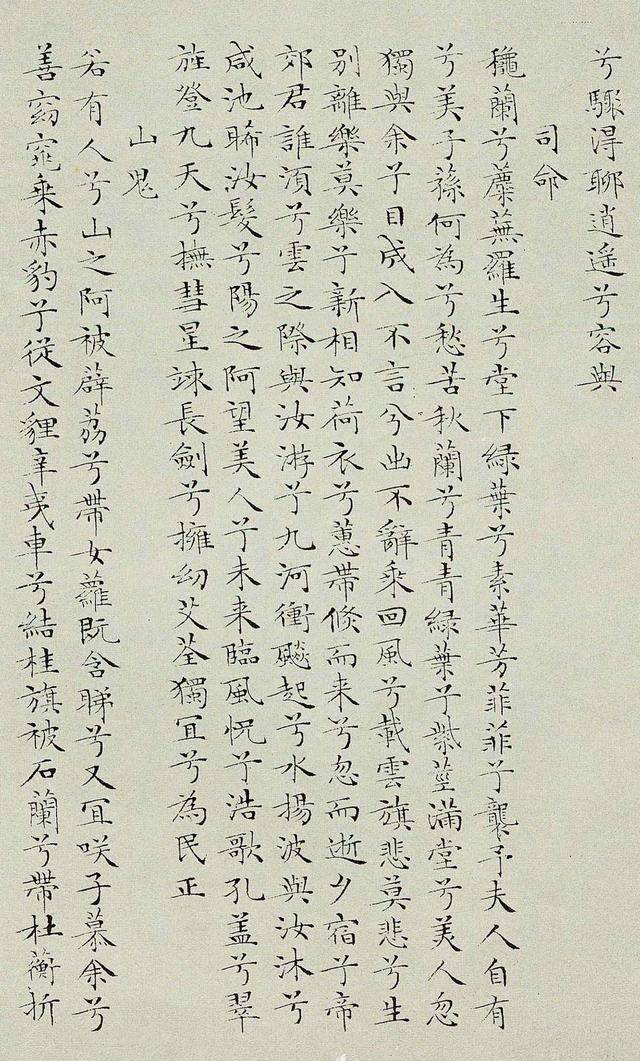 兮驟得聊逍遙兮容與
司命
穐蘭兮蘪蕪羅生兮堂下綠葉兮素華芳菲菲兮襲予夫人自有
兮美子蓀何為兮愁苦秋蘭兮青青綠葉兮紫莖滿堂兮美人忽
獨與余兮目成入不言兮出不辭乘回風兮載雲旗悲莫悲兮生
別離樂莫樂兮新相知荷衣兮蕙帶倏而来兮忽而逝夕宿兮帝
郊君誰須兮雲之際與汝游兮九河衝飈起兮水揚波與汝沐兮
咸池晞汝髮兮陽之阿望美人兮未来臨風怳兮浩歌孔盖兮翠
旌登九天兮撫彗星竦長劍兮擁幼艾荃獨宜兮為民正
山鬼
若有人兮山之阿被薜荔兮帶女蘿既含睇兮又宜咲子慕余兮
善窈窕乘赤豹兮從文貍辛夷車兮結桂旗被石蘭兮帶杜蘅折